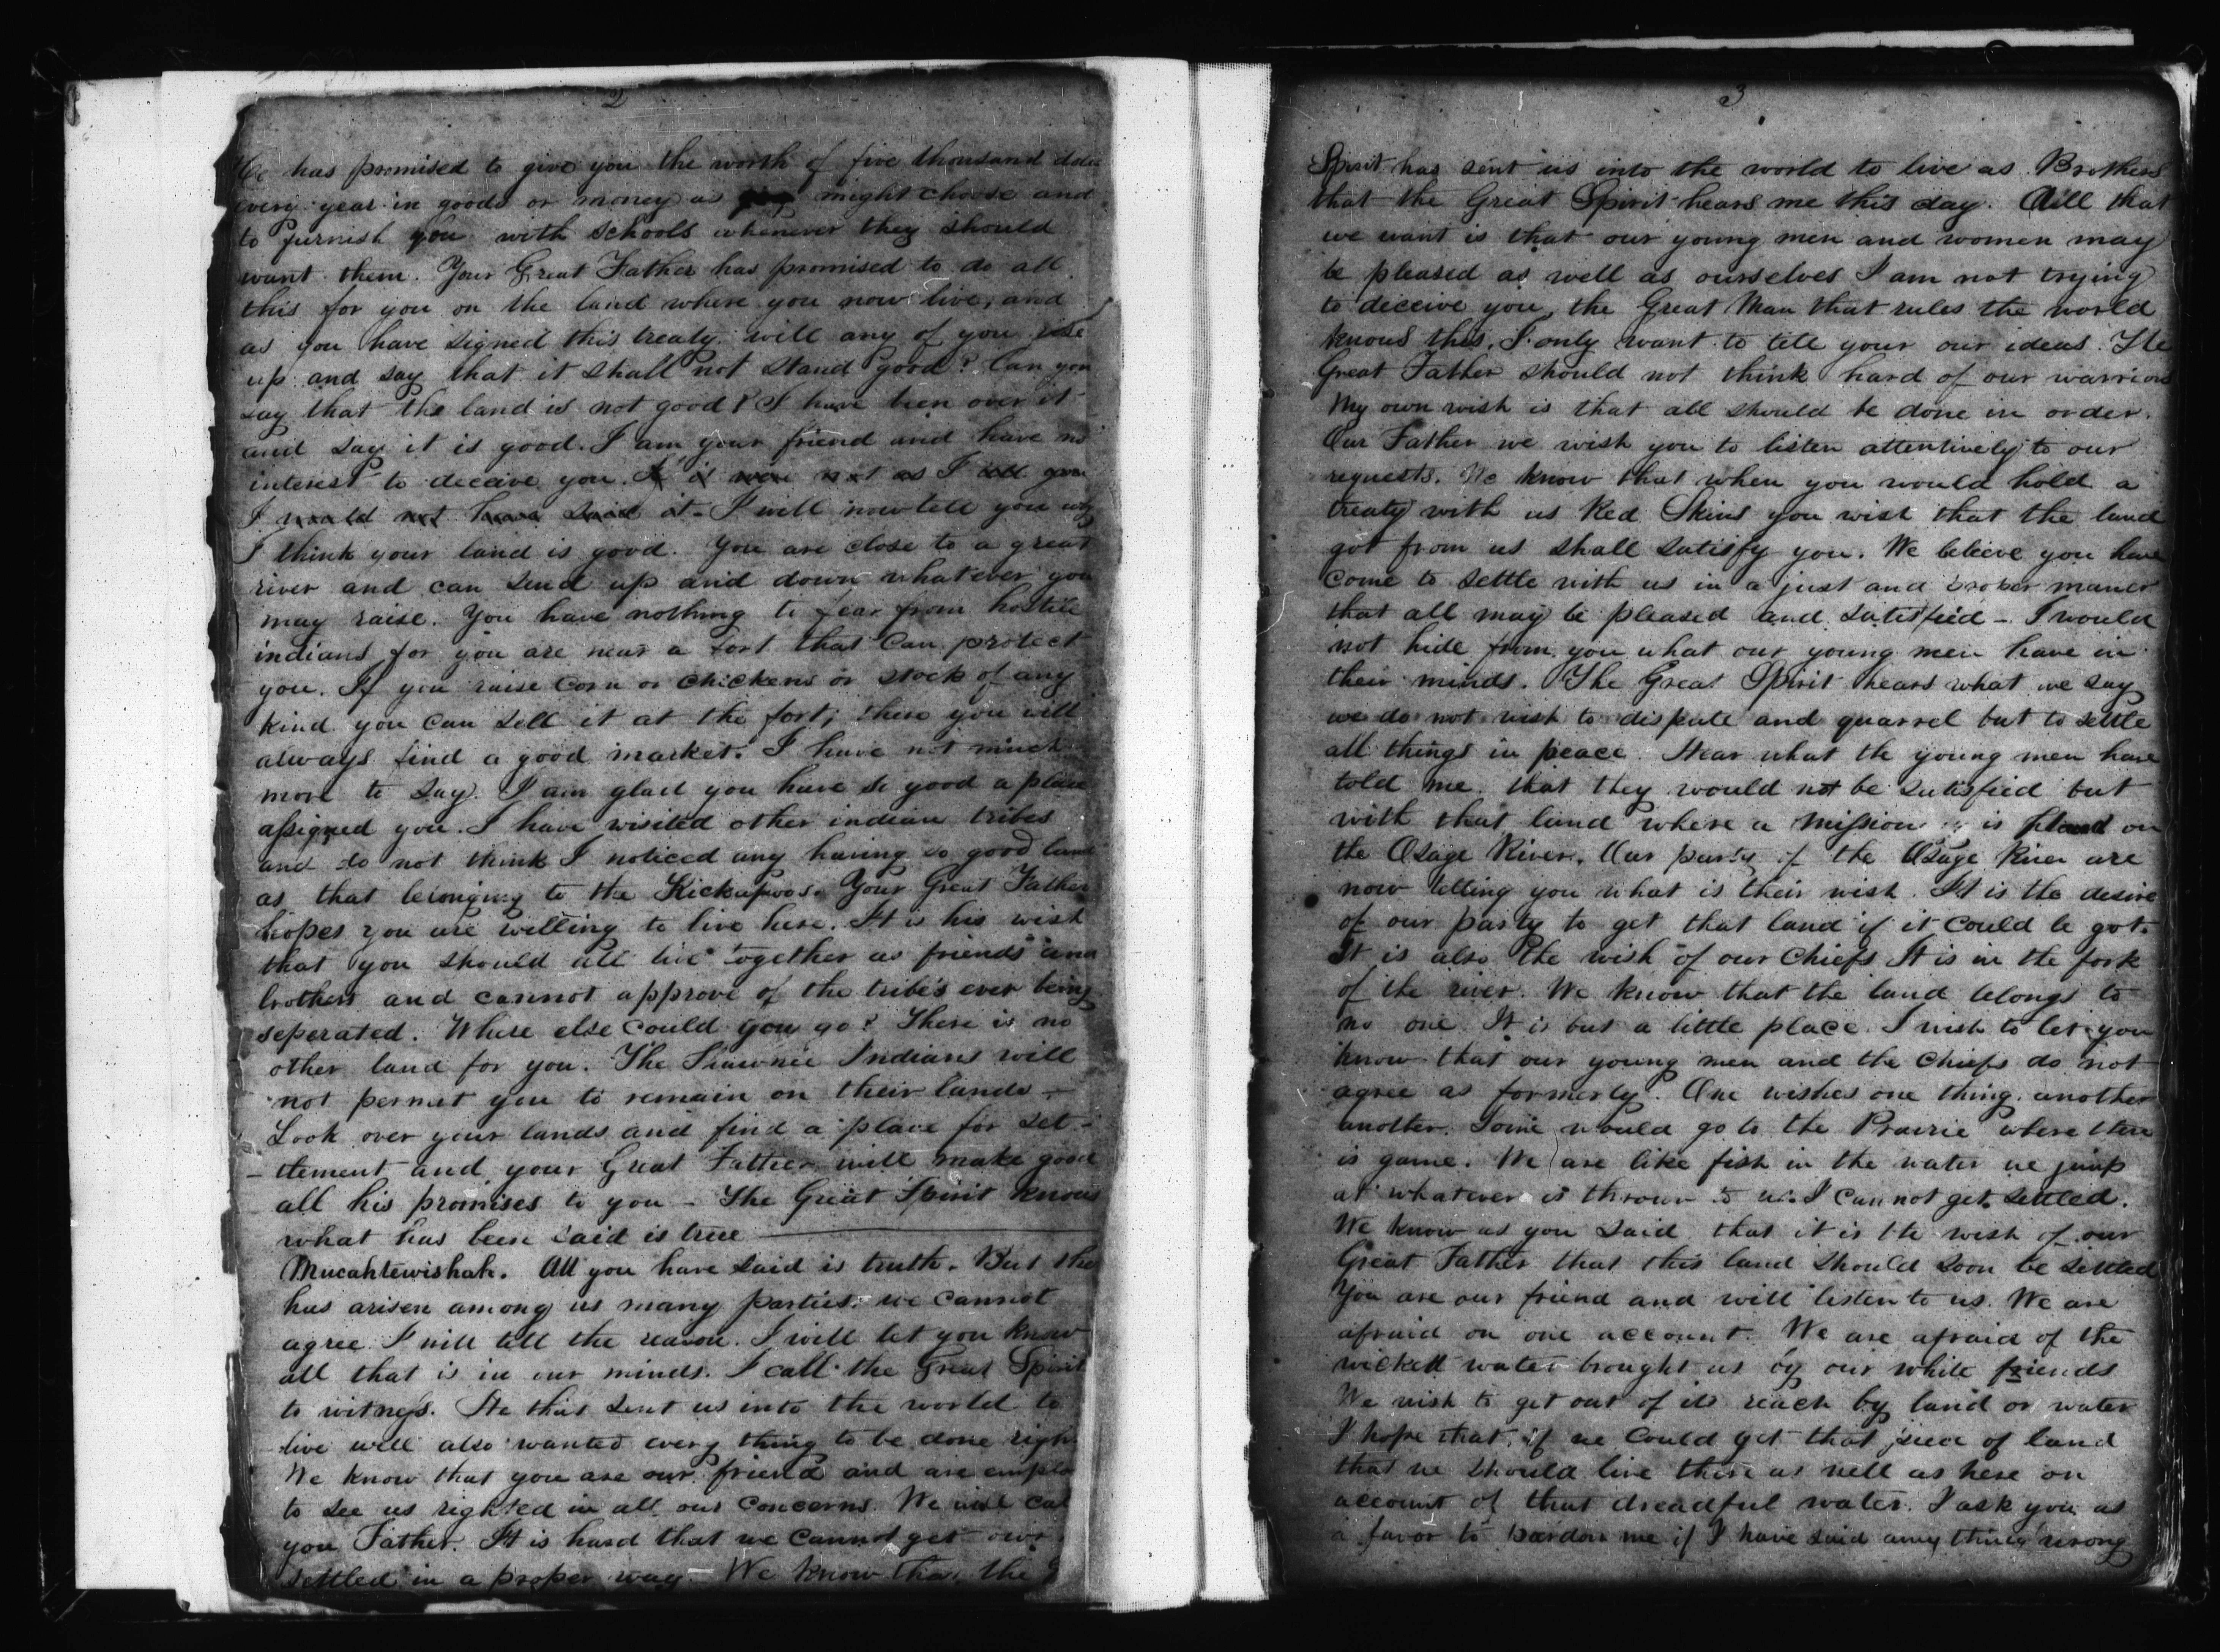 2
He has promised to give you the worth of five thousand dolls
every year in goods or money as might choose and
to furnish you with schools whenever they should
want them. Your Great Father has promised to do all
this for you on the land where you now live, and
as you have signed this treaty will any of you rise
up and say that it shall not stand good? Can you
say that the land is not good? I have been over it
and say it is good. I am your friend and have no
interest to deceive you. If it were not as I tell you
I would not have said it. I will now tell you why
I think your land is good. You are close to a great
river and can send up and down whatever you
may raise. You have nothing to fear from hostile
indians for you are near a fort that can protect
you. If you raise corn or chickens or stock of any
kind you can sell it at the fort; there you will
always find a good market. I have not much
more to say. I am glad you have so good a place
assigned you. I have visited other indian tribes
and do not think I noticed any having so good land
as that belonging to the Kickapoos. Your Great Father
hopes you are willing to live here. It is his wish
that you should all live together as friends and
brothers and cannot approve of the tribe's ever being
seperated. Where else could you go? There is no
other land for you. The Shawnee Indians will
not permit you to remain on their lands –
Look over your lands and find a place for set-
-tlement and your Great Father will make good
all his promises to you – The Great Spirit knows
what has been said is true
Mucahtewishah. All you have said is truth. But the
has arisen among us many parties. we cannot
agree I will tell the reason. I will let you know
all that is in our minds. I call the Great Spirit
to witness. He that sent us into the world to
live well also wanted every thing to be done righ
We know that you are our friend and are emplo
to see us righted in all our concerns. We will cal
you Father. It is hard that we cannot get our
settled in a proper way – We know that the G
3
Spirit has sent us into the world to live as Brothers
that the Great Spirit hears me this day. All that
we want is that our young men and women may
be pleased as well as ourselves I am not trying
to deceive you, the Great Man that rules the world
knows this. I only want to tell your our ideas. The
Great Father should not think hard of our warriors
My own wish is that all should be done in order.
Our Father we wish you to listen attentively to our
requests. We know that when you would hold a
treaty with us Red Skins you wish that the land
got from us shall satisfy you. We believe you have
come to settle with us in a just and proper maner
that all may be pleased and satisfied – I would
not hide from you what our young men have in
their minds. The Great Spirit hears what we say
we do not wish to dispute and quarrel but to settle
all things in peace. Hear what the young men have
told me. that they would not be satisfied but
with that land where a mission is placed on
the Osage River. Our party of the Osage River are
now telling you what is their wish. It is the desire
of our party to get that land if it could be got.
It is also the wish of our Chiefs It is in the fork
of the river. We know that the land belongs to
no one. It is but a little place. I wish to let you
know that our young men and the chiefs do not
agree as formerly. One wishes one thing. another
another. Some would go to the Prairie where there
is game. We are like fish in the water we jump
at whatever is thrown to us. I cannot get settled.
We know as you said that it is the wish of our
Great Father that this land should soon be settled
You are our friend and will listen to us. We are
afraid on one account. We are afraid of the
wicked water brought us by our white friends
We wish to get out of its reach by land or water
I hope that, if we could get that piece of land
that we should live there as well as here on
account of that dreadful water. I ask you as
a favor to pardon me if I have said any thing wrong